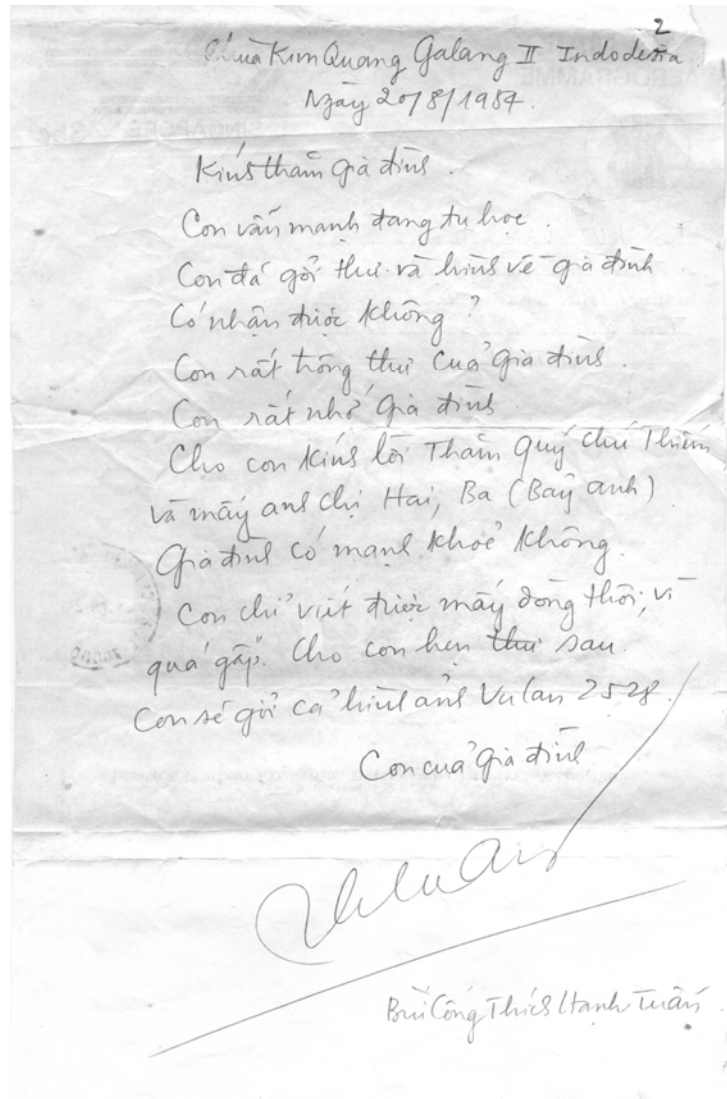 2
Chuà Kim Quang Galang II Indodesia.
Ngày 20/8/1984.
Kính thăm gia đình.
Con vẫn mạnh đang tu học.
Con đã gởi thư và hình về gia đình
Có nhận được không?
Con rất trông thư cuả gia đình.
Con rất nhớ gia đình
Cho con kính lời Thăm quý chú Thiếm
và mấy anh chị Hai, Ba (Baỷ anh)
Gia đình có mạnh khoẻ không.
Con chỉ viết được mấy dòng thôi, vì
quá gấp. Cho con hẹn thư sau.
Con sẽ gởi cả hình ảnh Vu lan 2528.
Con cuả gia đình
Bùi Công Thích Hạnh Tuấn.
AEROGRAMME